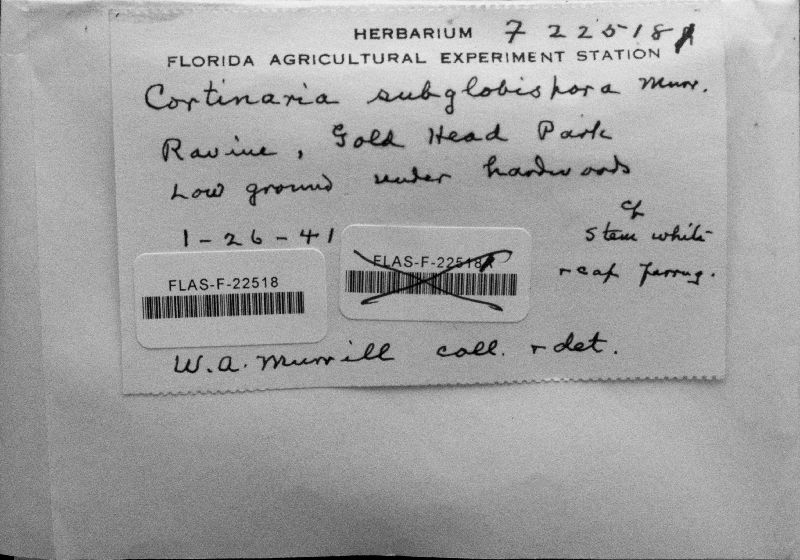 HERBARIUM F 22518
FLORIDA AGRICULTURAL EXPERIMENT STATION
Cortinaria subglobispora Murr.
Ravine, Gold Head Park
Low ground under hardwoods
1-26-41
cf
Stem white
+ cap ferrug.
FLAS-F-22518
FLAS-F-22518
W.A. Murrill coll. + det.